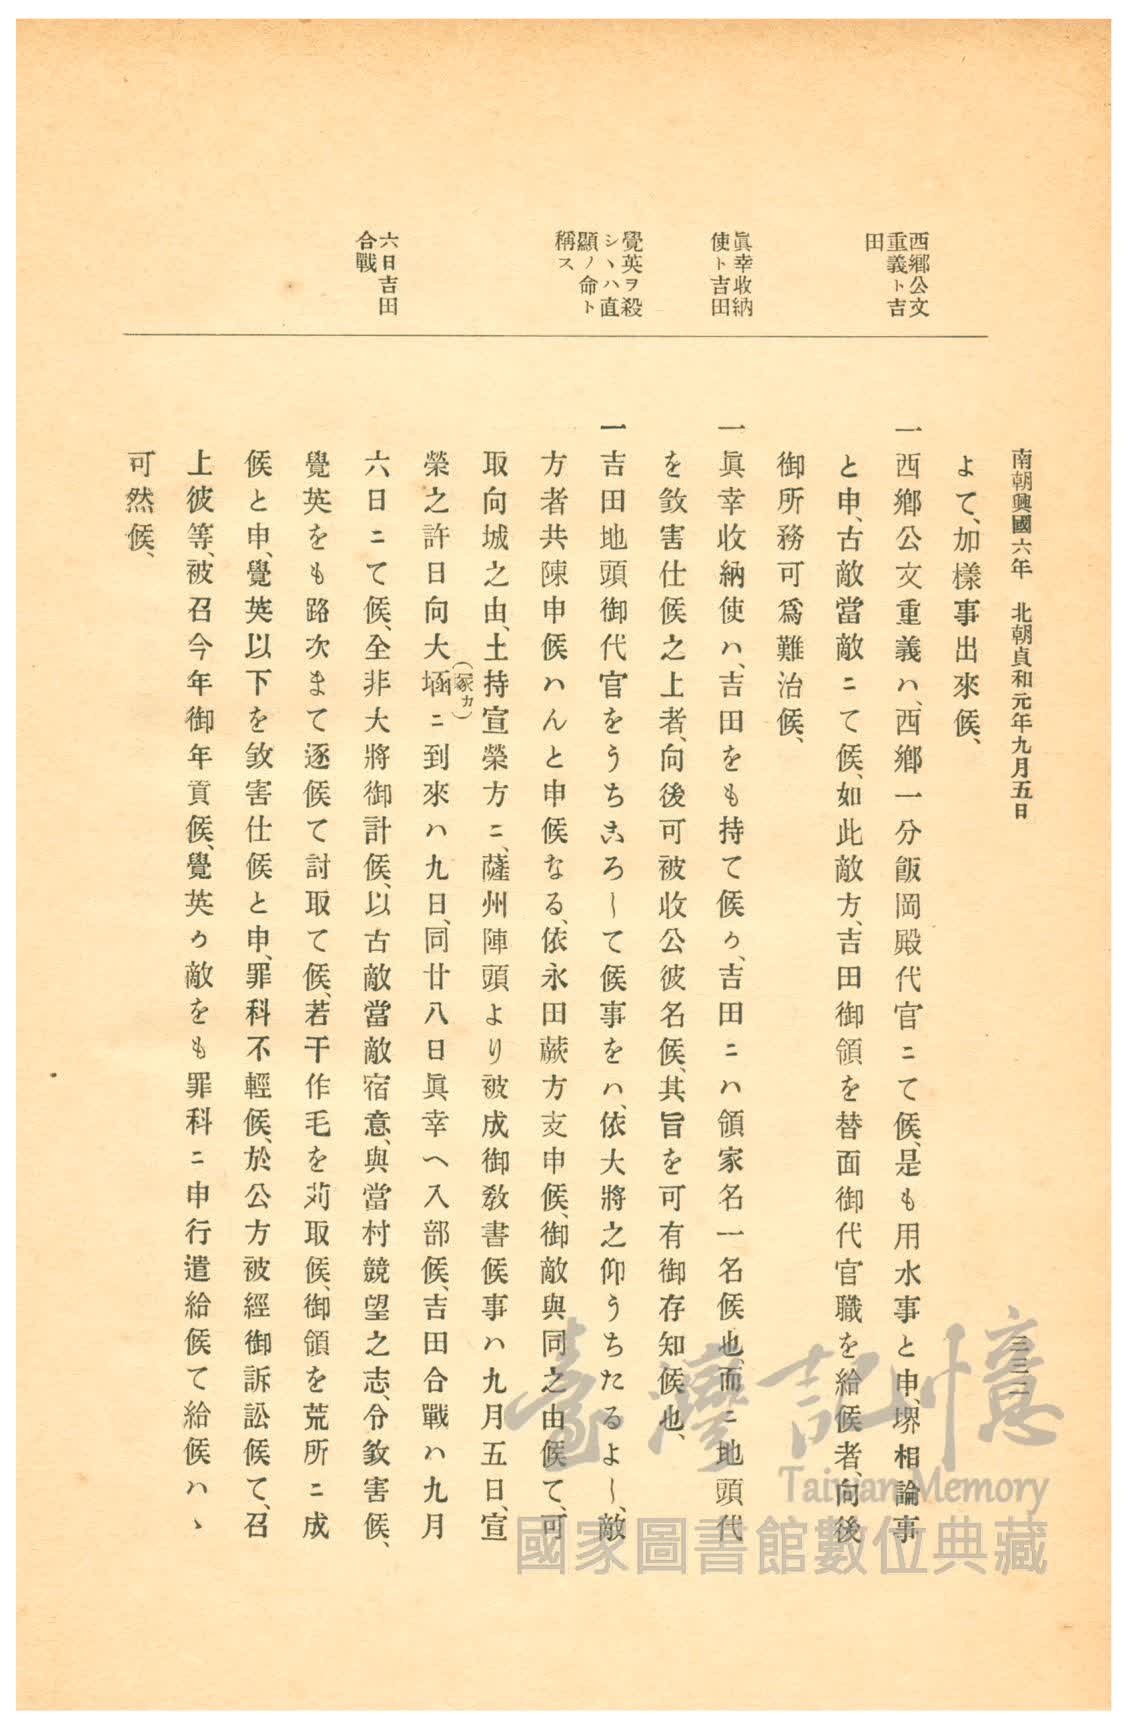 南朝興國六年　北朝貞和元年九月五日　三三二
西鄕公文
重義ト吉
田
眞幸收納
使ト吉田
覺英ヲ殺
シヽハ直
顯ノ命ト
稱ス
六日吉田
合戰
よて、加樣事出來候、
一西鄕公文重義ハ、西鄕一分飯岡殿代官ニて候、是も用水事と申、堺相論事
と申、古敵當敵ニて候、如此敵方、吉田御領を替面御代官職を給候者、向後
御所務可爲難治候、
一眞幸收納使ハ、吉田をも持て候か、吉田ニハ領家名一名候也、而ニ地頭代
を敓害仕候之上者、向後可被收公彼名候、其旨を可有御存知候也、
一吉田地頭御代官をうちころして候事をハ、依大將之仰うちたるよし、敵
方者共陳申候ハんと申候なる、依永田蕨方支申候、御敵與同之由候て、可
取向城之由、土持宣榮方ニ、薩州陣頭より被成御敎書候事ハ九月五日、宣
榮之許日向大𡑮（塚カ）ニ到來ハ九日、同廿八日眞幸へ入部候、吉田合戰ハ九月
六日ニて候、全非大將御計候、以古敵當敵宿意、與當村競望之志、令敓害候、
覺英をも路次まて逐候て討取て候、若干作毛を苅取候、御領を荒所ニ成
候と申、覺英以下を敓害仕候と申、罪科不輕候、於公方被經御訴訟候て、召
上彼等、被召今年御年貢候、覺英か敵をも罪科ニ申行遣給候て給候ハヽ
可然候、
臺灣記憶
Taiwan Memory
國家圖書館數位典藏